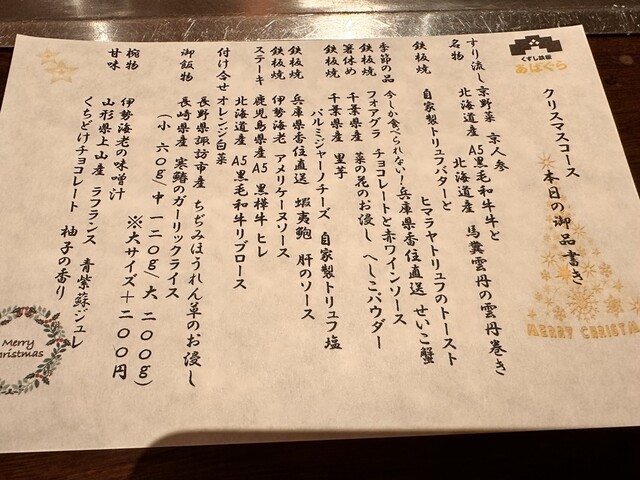 くずし鉄板
あばぐら
クリスマスコース 本日の御品書き
すり流し 京野菜 京人参
名物 北海道産 A5黒毛和牛と 北海道産 馬糞雲丹の雲丹巻き
鉄板焼 自家製トリュフバターと ヒマラヤトリュフのトースト
季節の品 今しか食べられない！兵庫県香住直送 せいこ蟹
鉄板焼 フォアグラ チョコレートと赤ワインソース
箸休め 千葉県産 菜の花のお浸し へしこパウダー
鉄板焼 千葉県産 里芋
パルミジャーノチーズ 自家製トリュフ塩
鉄板焼 兵庫県香住直送 蝦夷鮑 肝のソース
鉄板焼 伊勢海老 アメリケーヌソース
ステーキ 鹿児島県産A5 黒樺牛 ヒレ
北海道産 A5黒毛和牛リブロース
付け合せ オレンジ白菜
長野県諏訪市産 ちぢみほうれん草のお浸し
御飯物 長崎県産 寒鰆のガーリックライス
（小 六0g/中 一二0g/大 二00g）
※大サイズ＋二00円
椀物 伊勢海老の味噌汁
甘味 山形県上山産 ラフランス 青紫蘇ジュレ
くちどけチョコレート 柚子の香り
MERRY CHRISTMA
Merry
Christmas